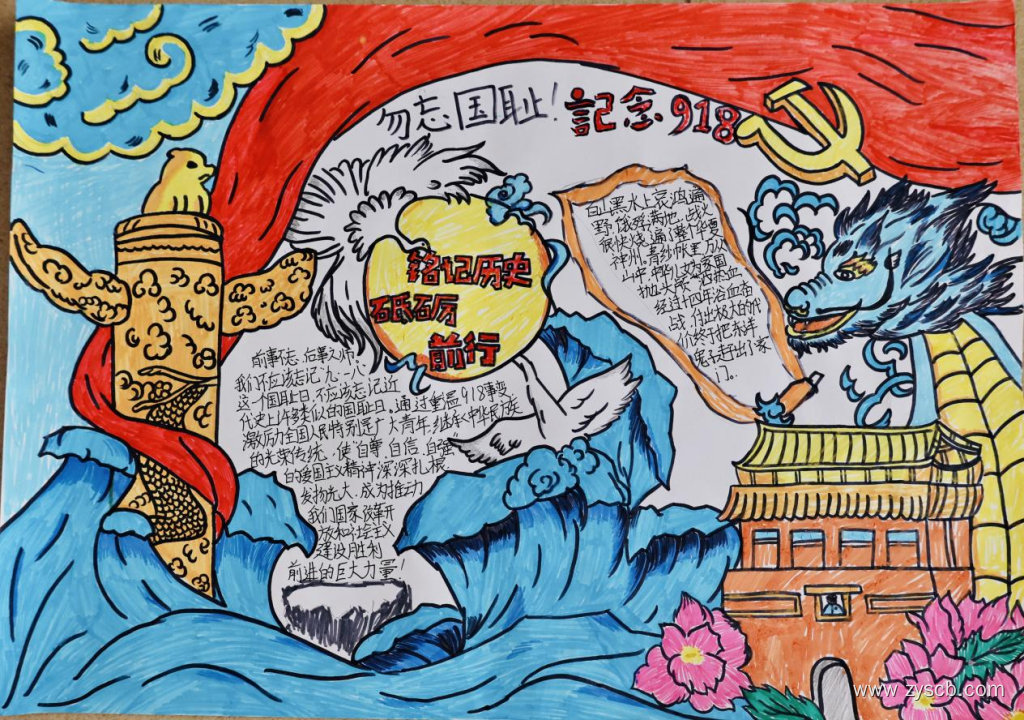 勿忘国耻！記念918
铭记历史
砥砺
前行
白山黑水上哀鸿遍
野，饿殍满地，战火
很快烧遍了整个华夏
神州，青纱帐里，万众
山中，中华儿女为家国
抛头颅、洒热血
经过十四年浴血奋
战，付出极大的代
价终于把东洋
鬼子赶出了家
门。
前事不忘，后事之师，
我们不应该忘记"九·一八"
这一个国耻日，不应该忘记近
代史上许多类似的国耻日。通过重温918事变
激励全国人民特别是广大青年，继承中华民族
的光荣传统，使"自尊、自信、自强"
的爱国主义精神深深扎根、
发扬光大，成为推动
我们国家改革开
放和社会主义
建设胜利
前进的巨大力量！
www.zyscb.com